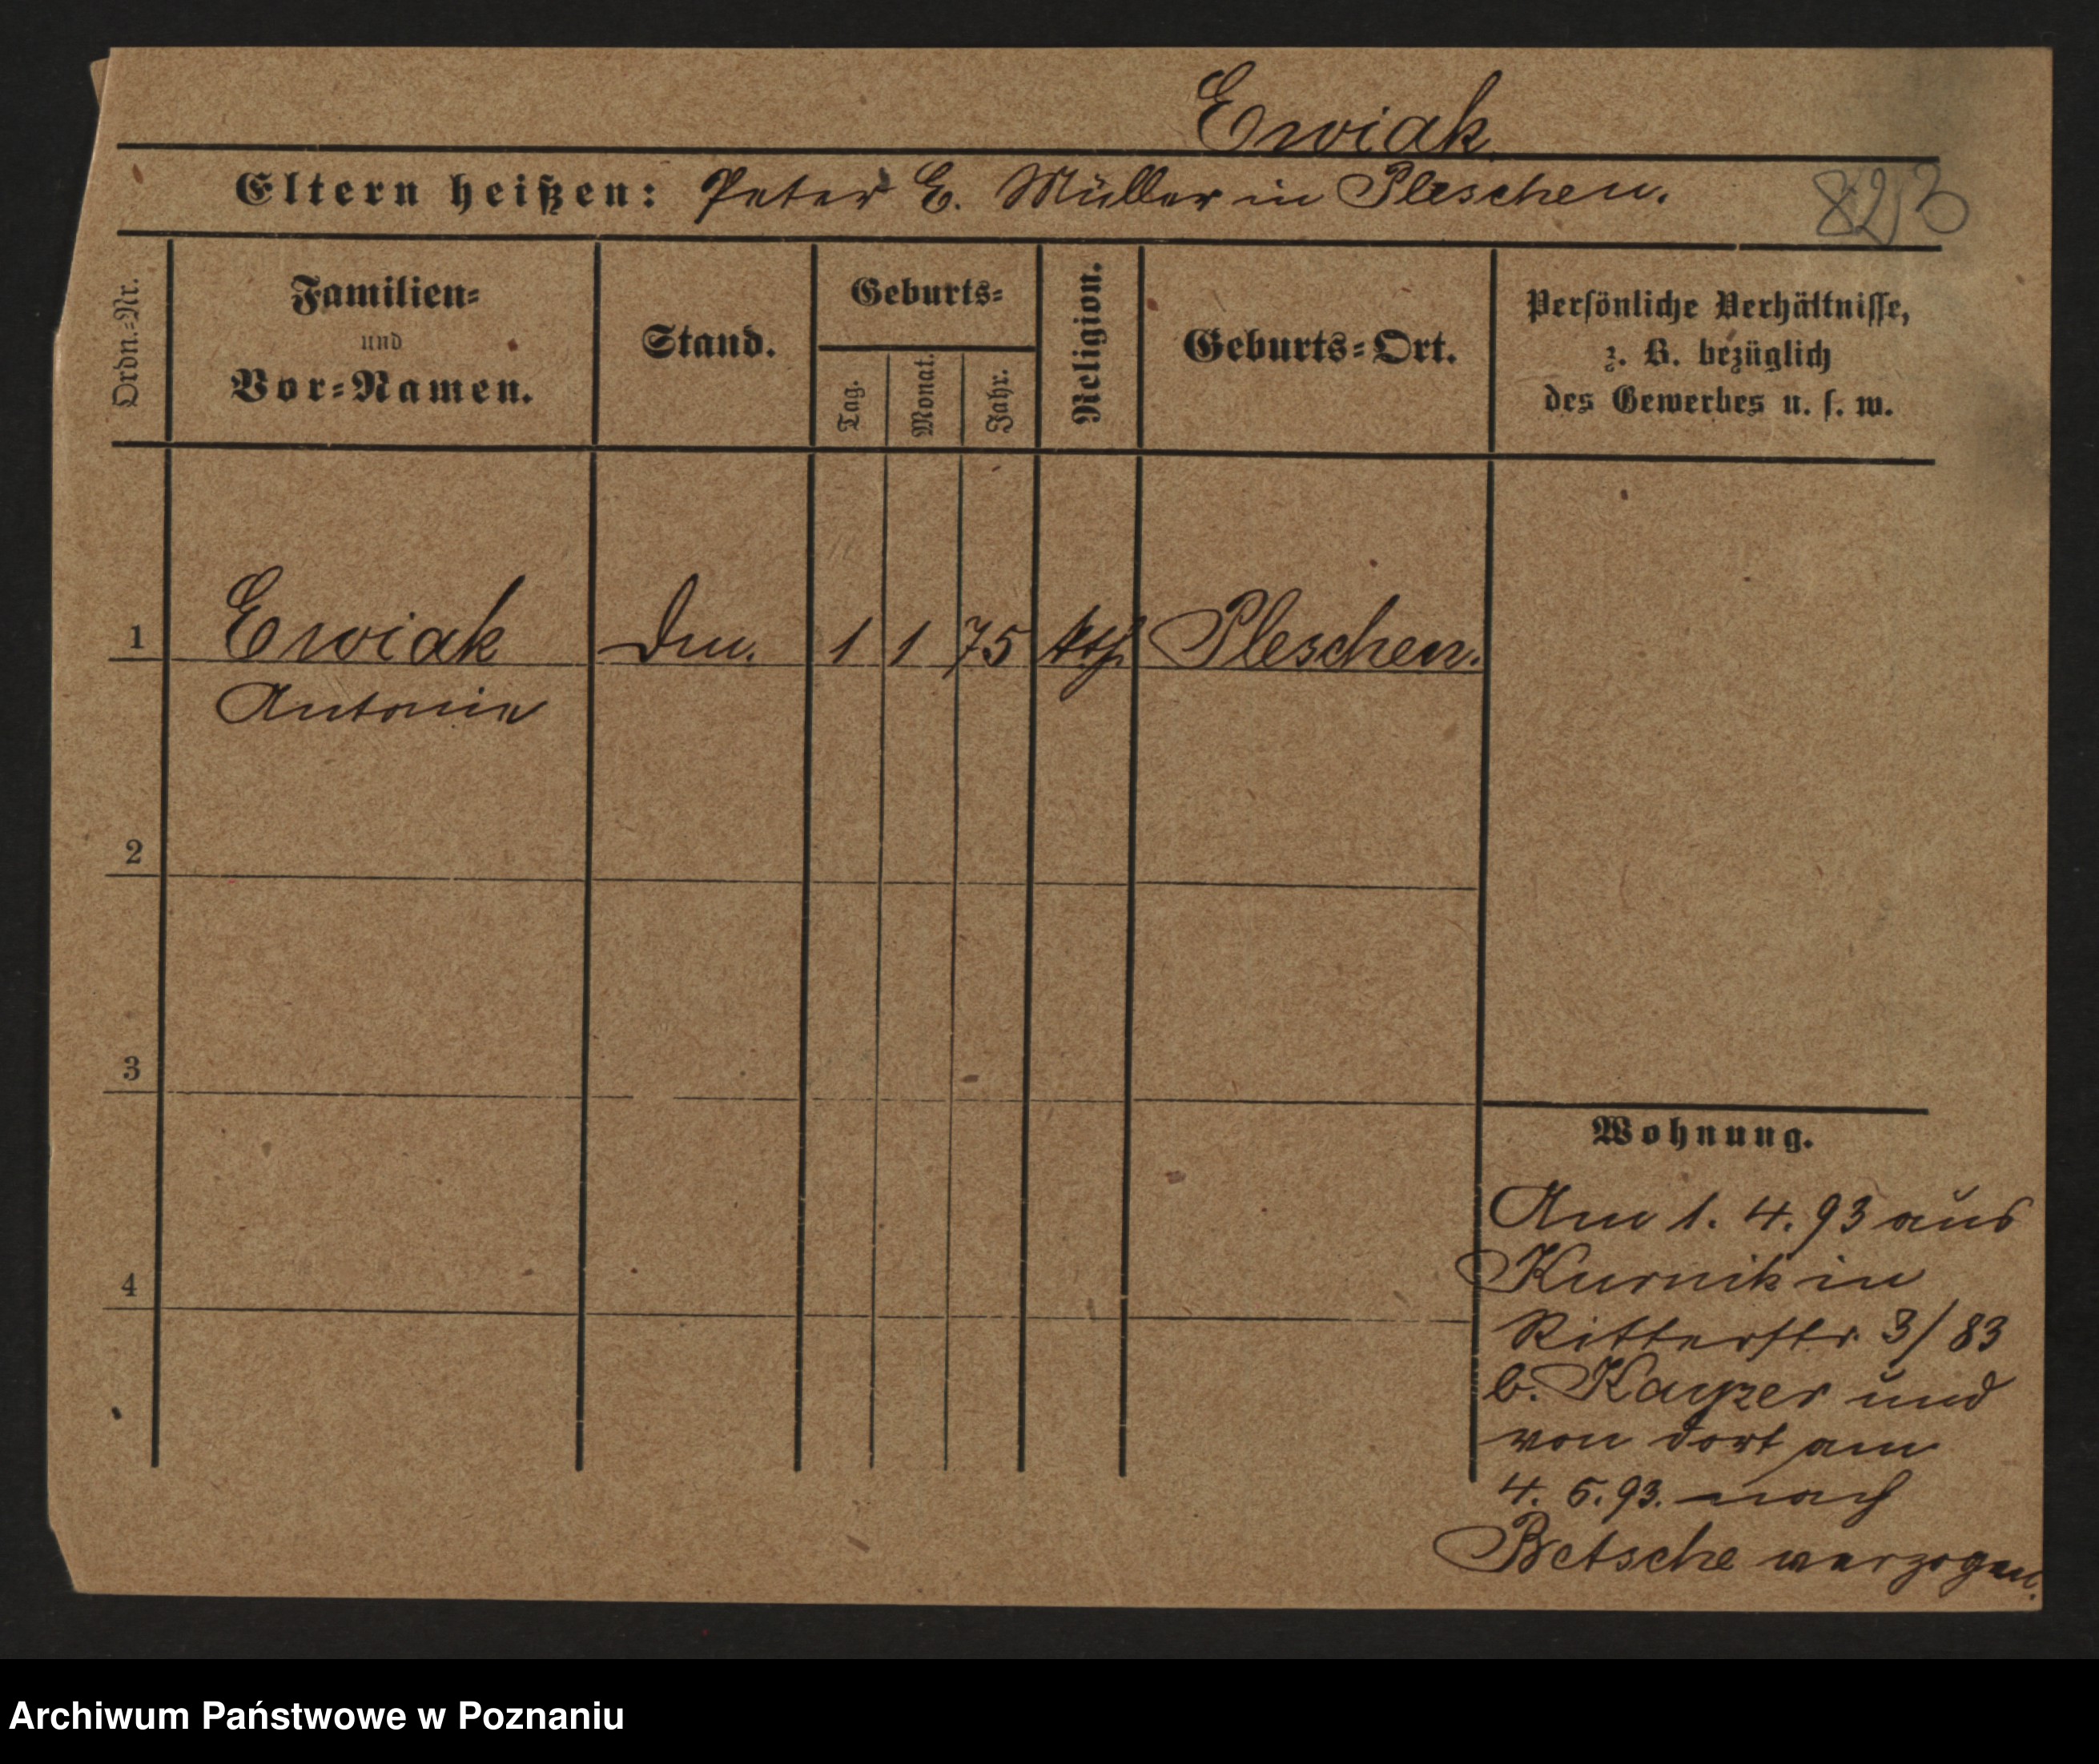 Ewiak
Eltern heißen: Peter E. Müller in Pleschen.
8213
Ordn.=Nr.
Familien=
und
Vor=Namen.
Stand.
Geburts=
Tag.
Monat.
Jahr.
Religion.
Geburts=Ort.
Persönliche Verhältnisse,
z. B. bezüglich
des Gewerbes u. s. w.
1 Ewiak 1 1 75 kth. Pleschen.
Antonie
2
3
4
Wohnung.
Am 1. 4. 93 aus
Kurnik in
Ritterstr. 3/83
b. Kayzer und
von dort am
4. 5. 93. nach
Betsche verzogen.
Archiwum Państwowe w Poznaniu